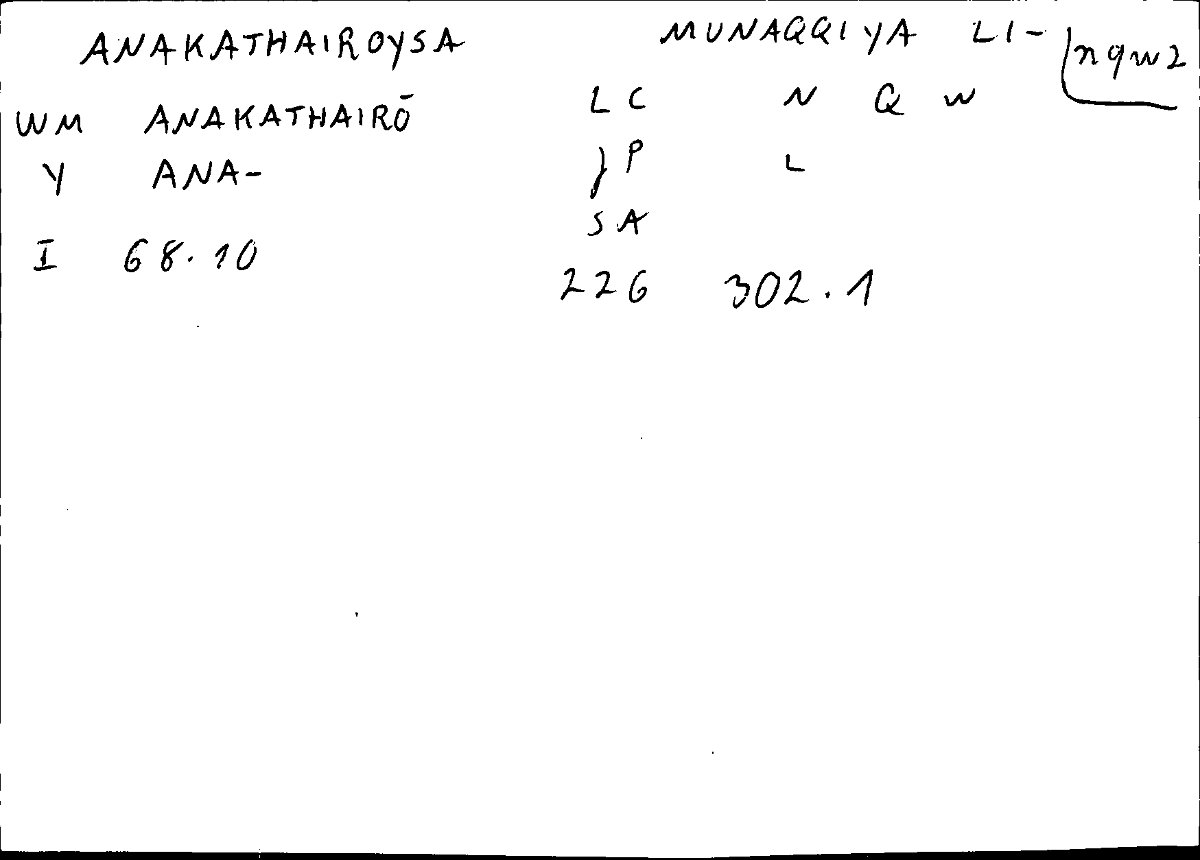 ANAKATHAIROYSA MUNAQQIYA LI- nqw2
WM ANAKATHAIRŌ LC N Q W
Y ANA- JP L
SA
I 68.10
226 302.1